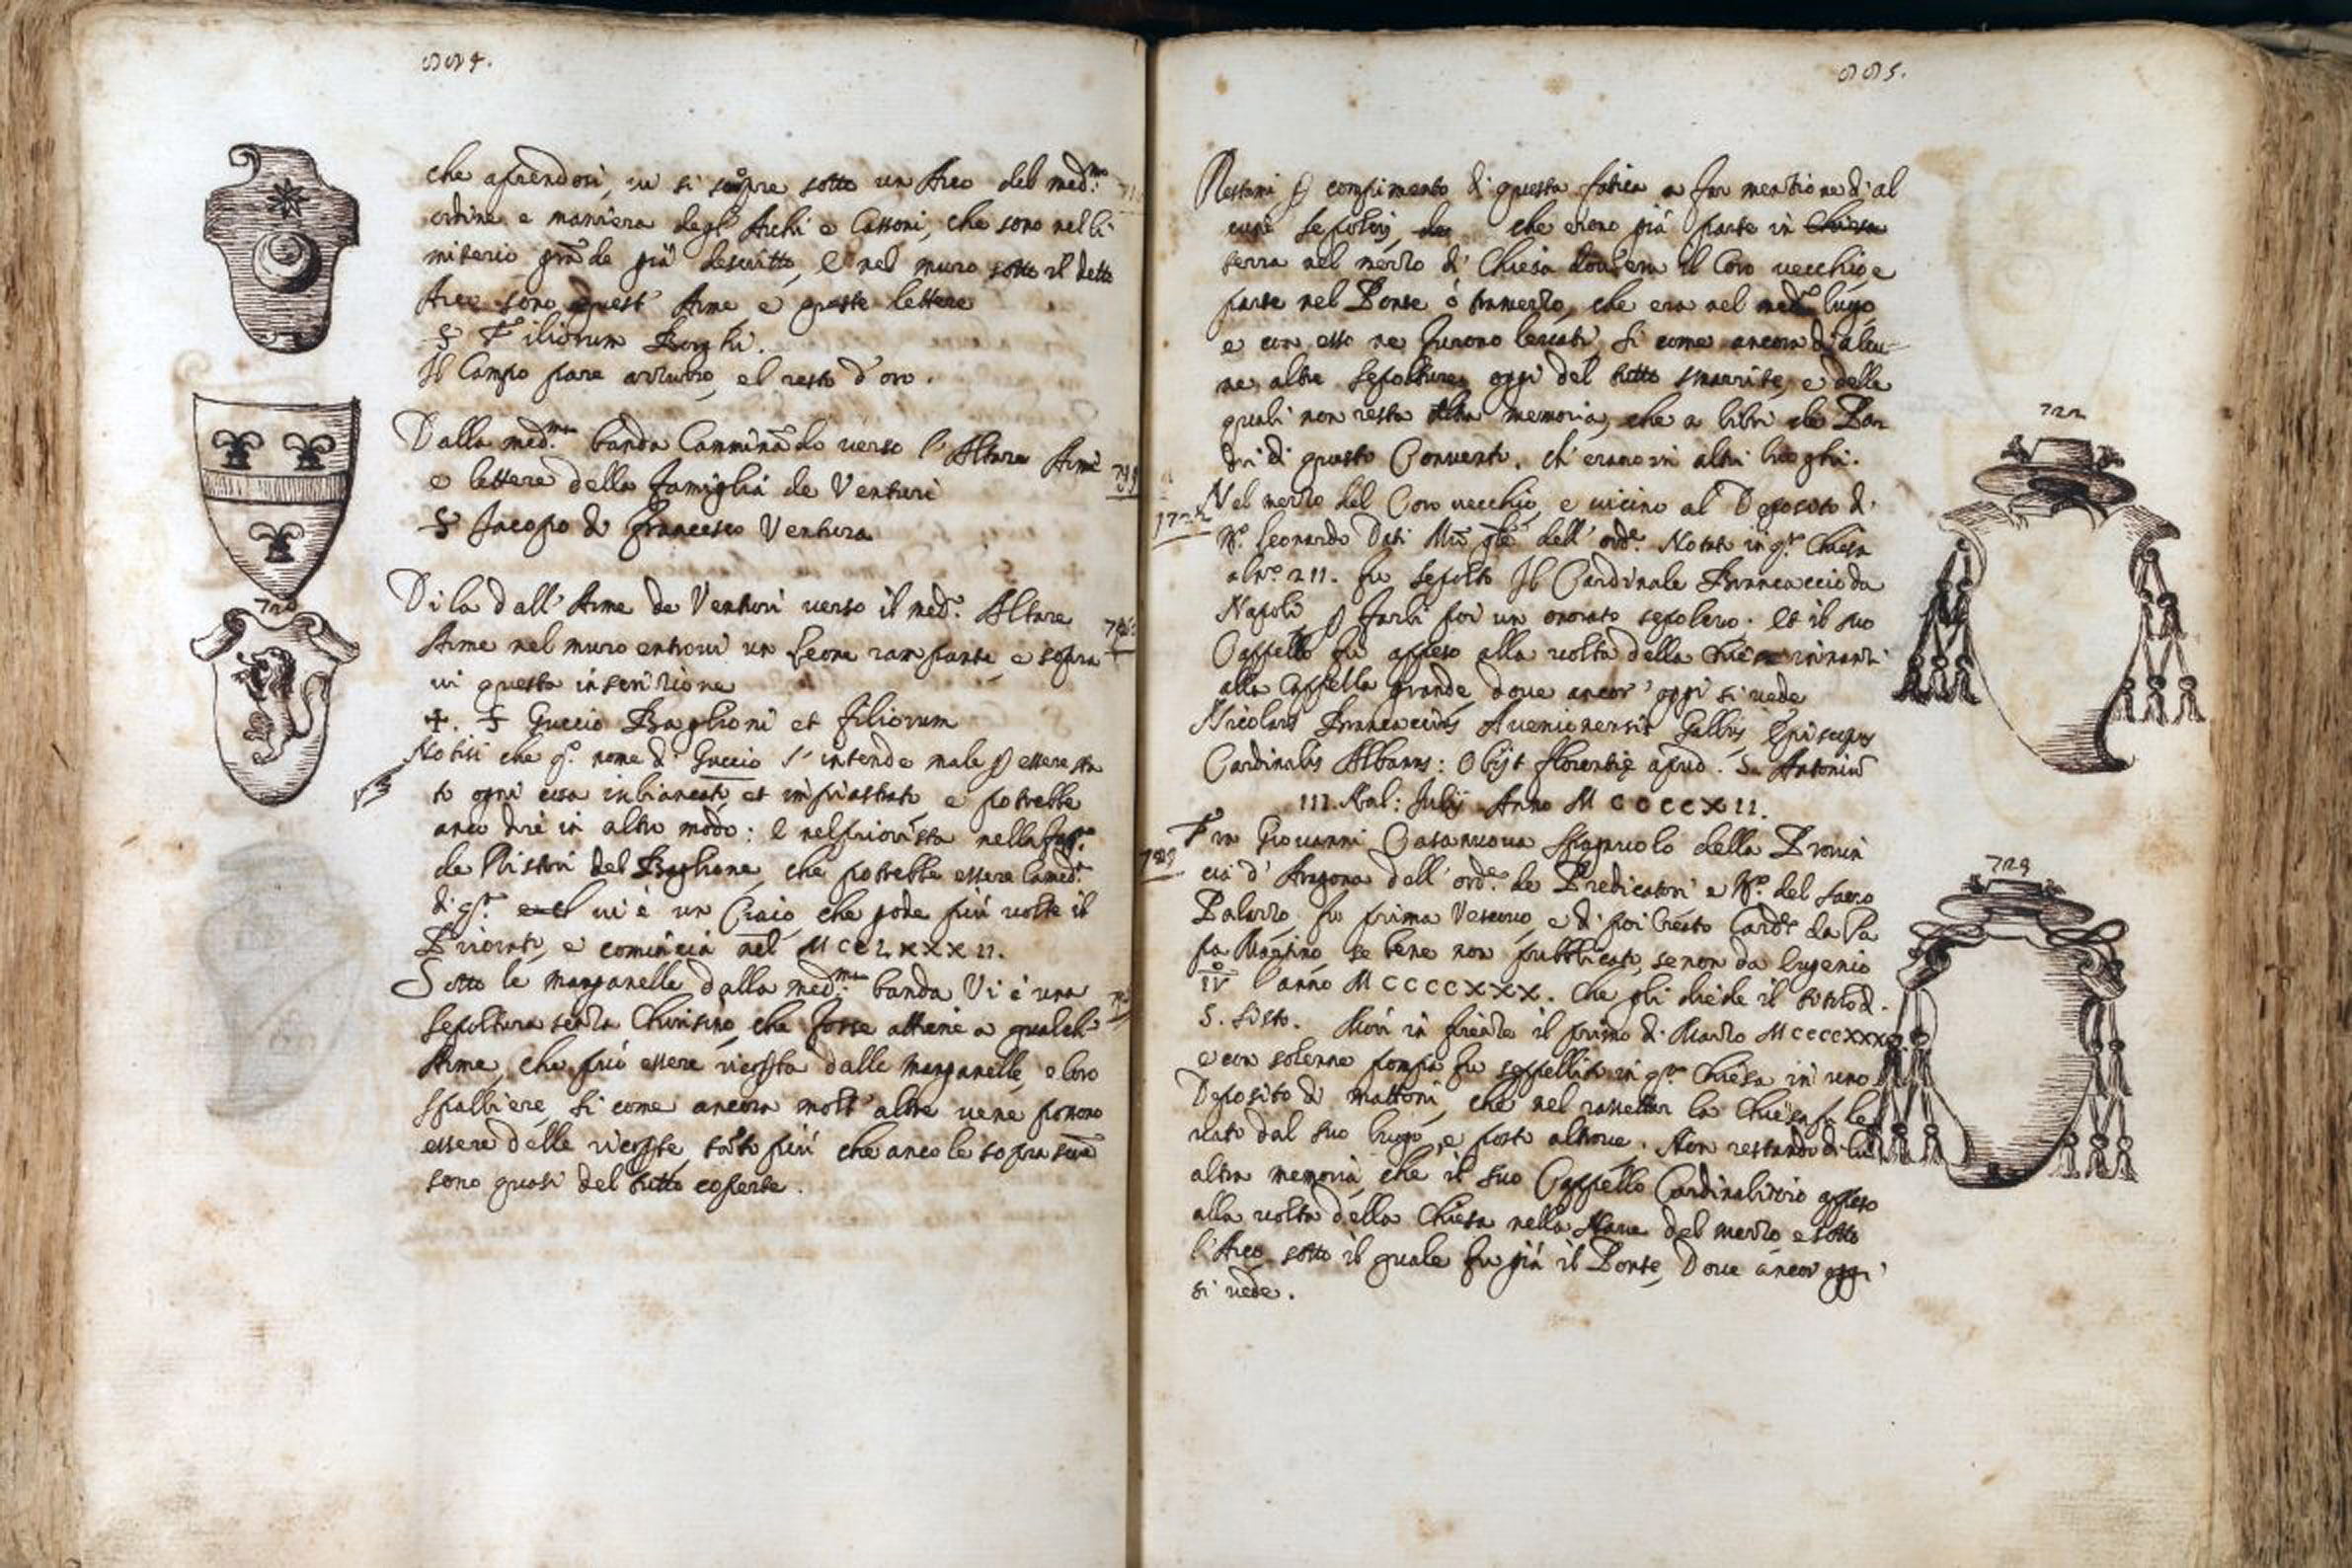 884.
che aprendosi, vi si scuopre sotto un Arco del med.mo
ordine e maniera degl' Archi e Cassoni, che sono nel Ci-
miterio grãde già descritto, e nel muro sotto il detto
Arco sono quest' Arme e queste lettere
S Filiorum Borghi.
Il Campo pare azzurro, el resto d'oro.
Dalla med.ma banda Camminãdo verso l'Altare Arme
e lettere della famiglia de Venturi
S Jacopo di Francesco Ventura
720
Di la dall' Arme de Venturi verso il med.o Altare
Arme nel muro entrovi un Leone rampante, e sopra
vi questa inscrizione
+. S Guccio Baglioni et filiorum
Notisi che q.o nome di Guccio s'intende male p essere sta
to ogni cosa inbiancato et impiastrato e potrebbe
anco dire in altro modo: e nel priorista nella
de Ristori del Baglione, che potrebbe essere la med.
di q.a vi è un Ciaio, che gode più volte il
Priorato, e comincia nel MCCLXXXII.
Sotto le manganelle dalla med.ma banda Vi è una
sepoltura senza Chiusino, che forse attiene a qualch'
Arme, che può essere ricoperta dalle manganelle, e loro
spalliere, si come ancora molt' altre vene possono
essere delle ricoperte, tãto più che anco le sopra
sono quasi del tutto coperte.
885.
Restami p compimento di questa fatica a far mentione d'al
cuni sepolcri, che erono già parte in Chiesa
terra nel mezzo di Chiesa dov'era il Coro vecchio, e
parte nel Ponte ò tramezzo, che era nel med.o luogo
e con esso ne furono levati, si come ancora d'alcu-
ne altre sepolture, oggi del tutto smarrite, e delle
quali non resta altra memoria, che a libri de Pa-
dri di questo Convento, ch'erano in altri luoghi.
722
Nel mezzo del Coro vecchio, e vicino al Deposito di
M.o Leonardo Dati Mro gñle dell' ord.e Notato in q.a Chiesa
al n.o 211. fu sepolto Il Cardinale Brancaccio da
Napoli, p farli poi un onorato sepolcro. et il suo
Cappello fu appeso alla volta della Chiesa innanzi
alla Cappella grande, dove ancor' oggi si vede
Nicolaus Brancaccius Avenionensis Gallus Episcopus
Cardinalis Albanus: Obijt florentię apud S. Antoniũ
III. Kal: Julij Anno MCCCCXII.
723
Fra Giovanni Casanuova Spagnuolo della Provin
cia d'Aragona dell' ord.e de Predicatori e M.o del sacro
Palazzo fu prima Vescovo, e di poi Creato Card.e da Pa
pa Martino, se bene non pubblicato, se non da Eugenio
IV l'anno MCCCCXXX. che gli diede il titolo d.
S. Sisto. Morì in firenze il primo di Marzo MCCCCXXX
e con solenne pompa fu seppellito in q.a Chiesa in uno
Deposito di mattoni, che nel rassettar la Chiesa fu le
vato dal suo luogo, e posto altrove. Non restando di lui
altra memoria, che il suo Cappello Cardinalitio appeso
alla volta della Chiesa nella Nave del mezzo e sotto
l'Arco sotto il quale fu già il Ponte, Dove ancor oggi
si vede.